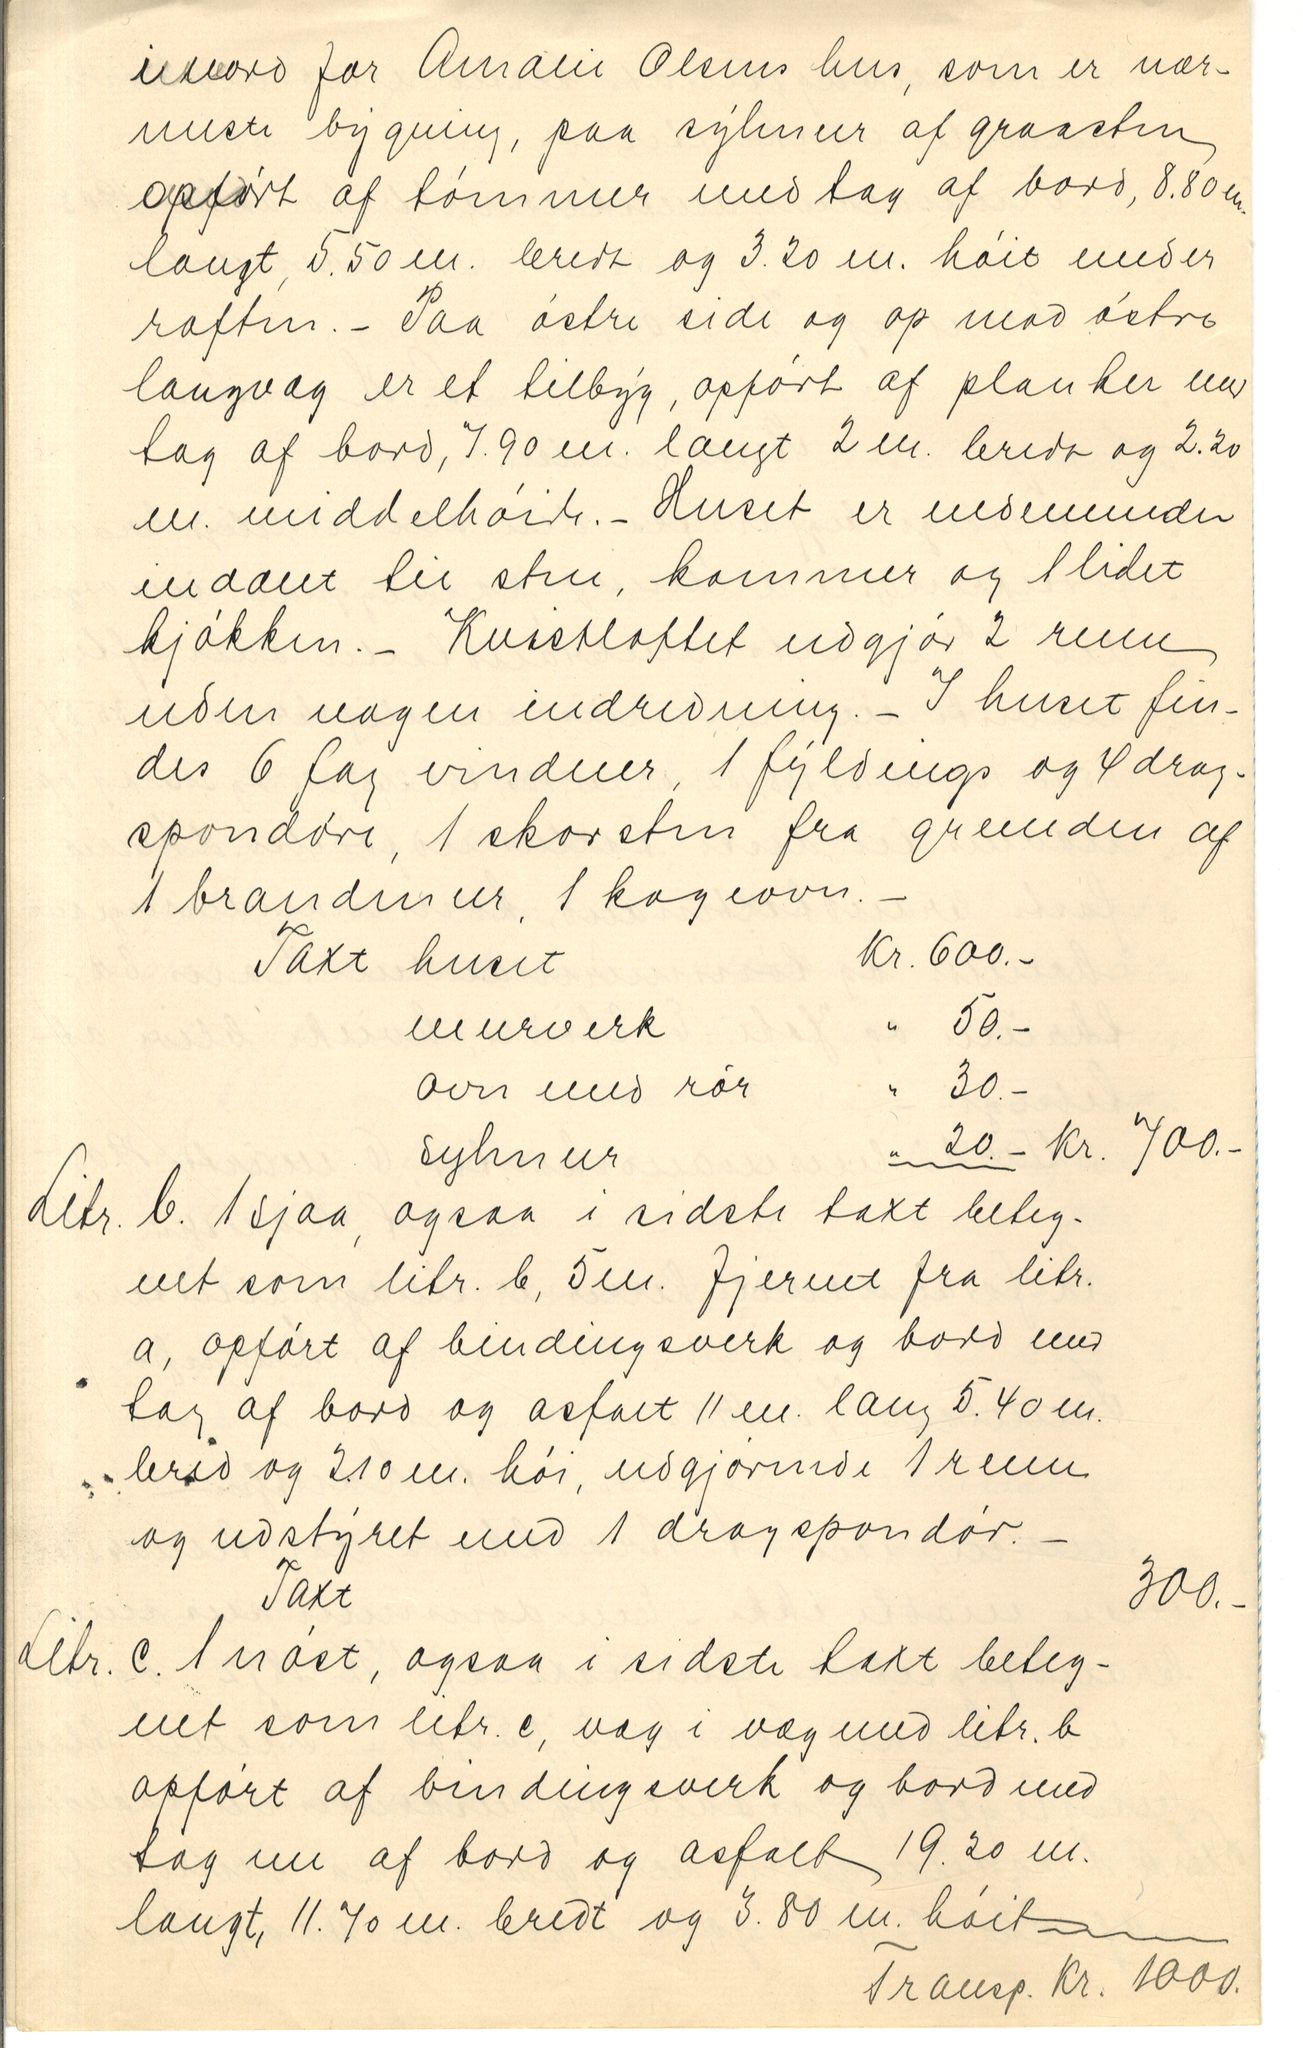 for Amalie Olsens hus, som er nær-
meste bygning, paa sylmur af graasten
opført af tømmer med tag af bord, 8.80 m.
langt, 5.50 m. bredt og 3.20 m. höit under
raften. - Paa östre side og op mod östre
langvæg er et tilbyg, opført af planker med
tag af bord, 7.90 m. langt 2 m. bredt og 2.20
m. middelhöide. - Huset er nedenunder
inddelt til stue, kammer og 1 lidet
kjökken. - Kvistloftet udgjör 2 rum
uden nogen indredning. - I huset fin-
des 6 fag vinduer, 1 fyldings og 4 drag-
spondøre, 1 skorsten fra grunden af
1 brandmur, 1 kogeovn. -
Taxt huset Kr. 600.-
murverk " 50.-
ovn med rör " 30.-
sylmur " 20.- Kr. 700.-
Litr. b. 1 sjaa, ogsaa i sidste taxt beteg-
net som litr. b, 5 m. fjernet fra litr.
a, opført af bindingsverk og bord med
tag af bord og asfalt 11 m. lang 5.40 m.
bred og 2.10 m. höi, udgjörende 1 rum
og udstyret med 1 dragspondör. -
Taxt 300.-
Litr. c. 1 nöst, ogsaa i sidste taxt beteg-
net som litr. c, væg i væg med litr. b
opført af bindingsverk og bord med
tag nu af bord og asfalt 19.20 m.
langt, 11.70 m. bredt og 3.80 m. höit
Transp. Kr. 1000.